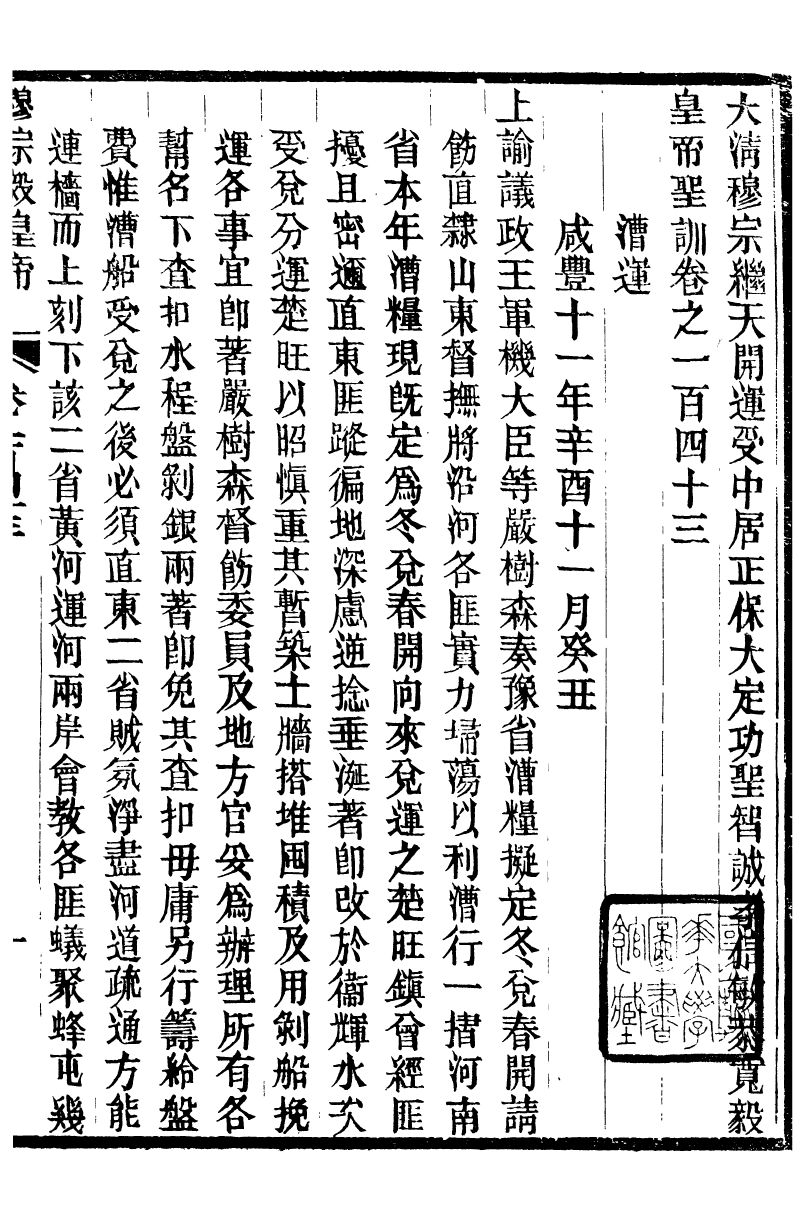 大清穆宗繼天開運受中居正保大定功聖智誠孝信敏恭寬毅
皇帝聖訓卷之一百四十三
漕運
咸豐十一年辛酉十一月癸丑
上諭議政王軍機大臣等嚴樹森奏豫省漕糧擬定冬兌春開請
飭直隸山東督撫將沿河各匪實力埽蕩以利漕行一摺河南
省本年漕糧現旣定爲冬兌春開向來兌運之楚旺鎮曾經匪
擾且密邇直東匪蹤徧地深慮逆捻垂涎著卽改於衞輝水次
受兌分運楚旺以昭愼重其暫築土牆搭堆囤積及用剝船挽
運各事宜卽著嚴樹森督飭委員及地方官妥爲辦理所有各
幫名下查扣水程盤剝銀兩著卽免其查扣毋庸另行籌給盤
費惟漕船受兌之後必須直東二省賊氛淨盡河道疏通方能
連檣而上刻下該二省黃河運河兩岸會教各匪蟻聚蜂屯幾
穆宗毅皇帝
一
大學
圖書
館藏